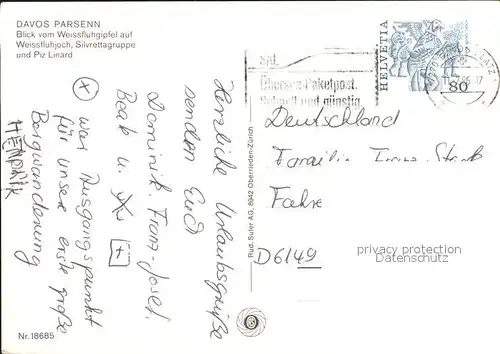 DAVOS PARSENN
Blick vom Weissfluhgipfel auf
Weissfluhjoch, Silvrettagruppe
und Piz Linard
HELVETIA
80
Übersee-Paketpost.
Schnell und günstig.
Herzliche Urlaubsgrüße
senden Euch
Dominik, Franz-Josef,
Beate u.
war Ausgangspunkt
für unsere erste große
Bergwanderung
HENDRIK
Deutschland
Familie
D6149
Rud. Suter AG, 8942 Oberrieden-Zürich
privacy protection
Datenschutz
Nr. 18685